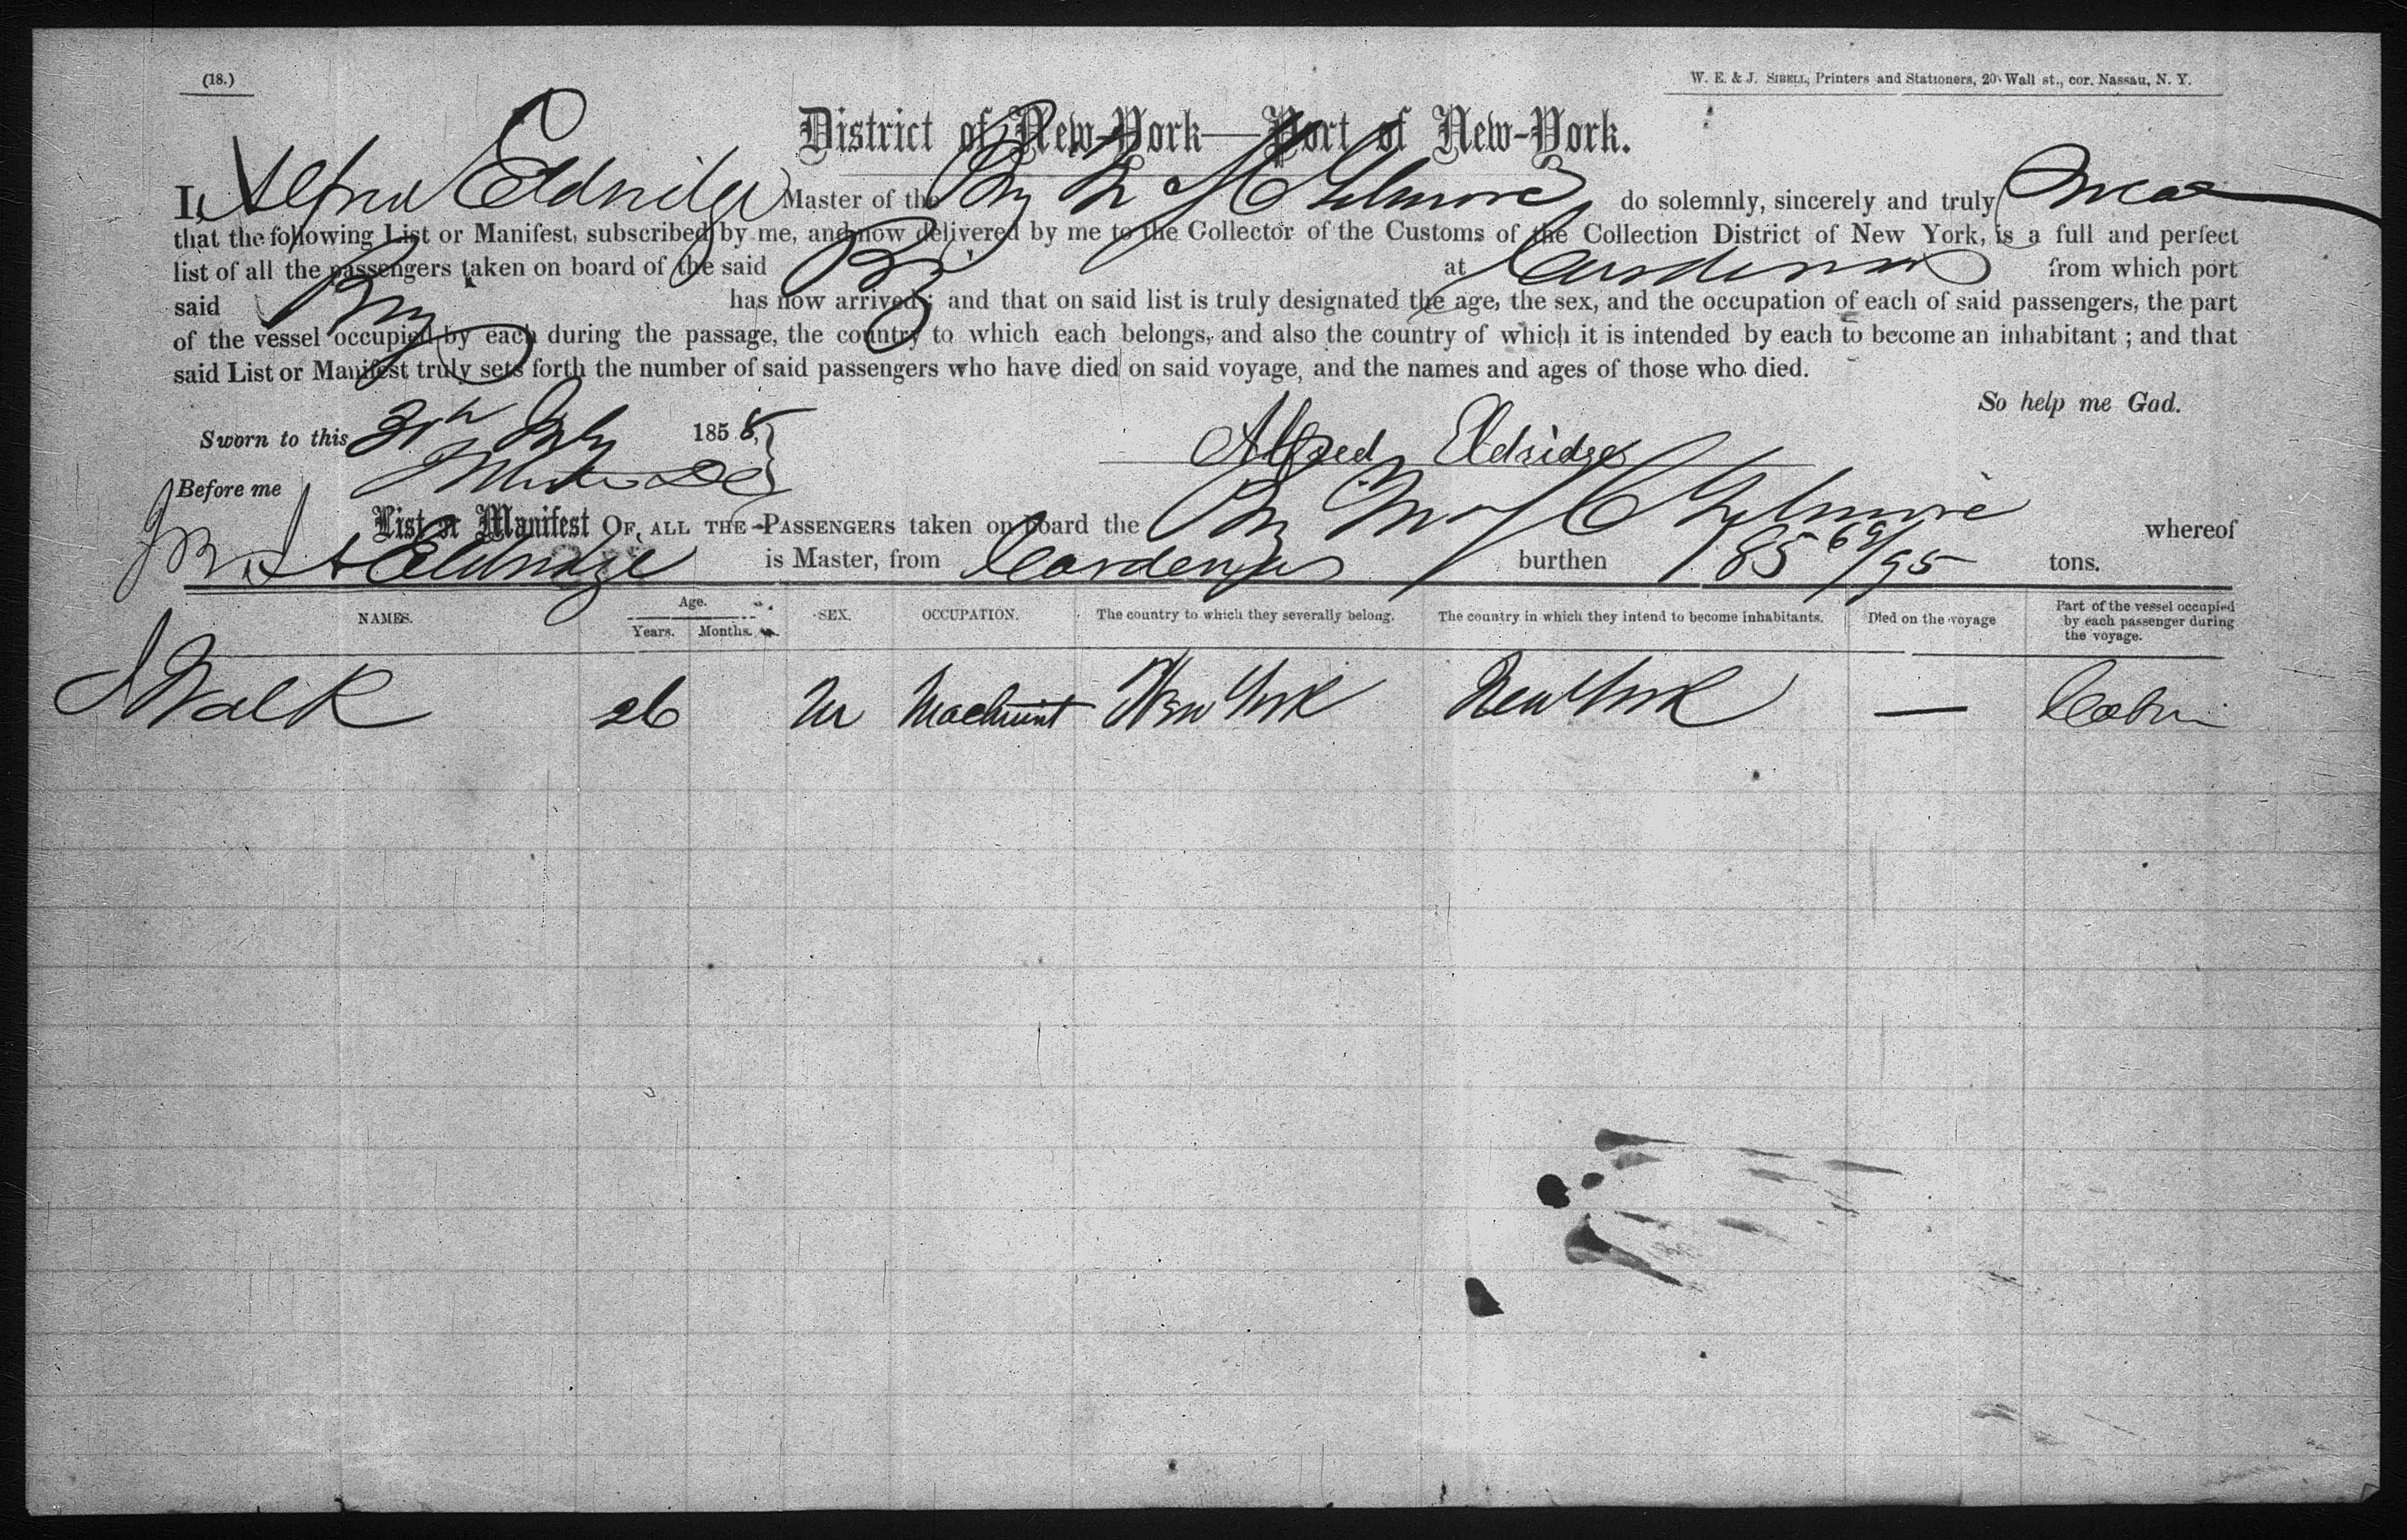 (18.)
W. E. & J. SIBELL, Printers and Stationers, 20 Wall st., cor. Nassau, N. Y.
District of New-York—Port of New-York.
I, Alfred Eldridge Master of the Brig Gilmore do solemnly, sincerely and truly swear
that the following List or Manifest, subscribed by me, and now delivered by me to the Collector of the Customs of the Collection District of New York, is a full and perfect
list of all the passengers taken on board of the said Brig at Cardenas from which port
said Brig has now arrived; and that on said list is truly designated the age, the sex, and the occupation of each of said passengers, the part
of the vessel occupied by each during the passage, the country to which each belongs, and also the country of which it is intended by each to become an inhabitant; and that
said List or Manifest truly sets forth the number of said passengers who have died on said voyage, and the names and ages of those who died.
So help me God.
Sworn to this July 1858,
Alfred Eldridge
Before me
List or Manifest OF ALL THE PASSENGERS taken on board the Brig Gilmore whereof
Eldridge is Master, from Cardenas burthen 185 69/95 tons.
NAMES. Age. Years. Months. SEX. OCCUPATION. The country to which they severally belong. The country in which they intend to become inhabitants. Died on the voyage Part of the vessel occupied by each passenger during the voyage.
J Walk 26 M Machinist New York New York — Cabin